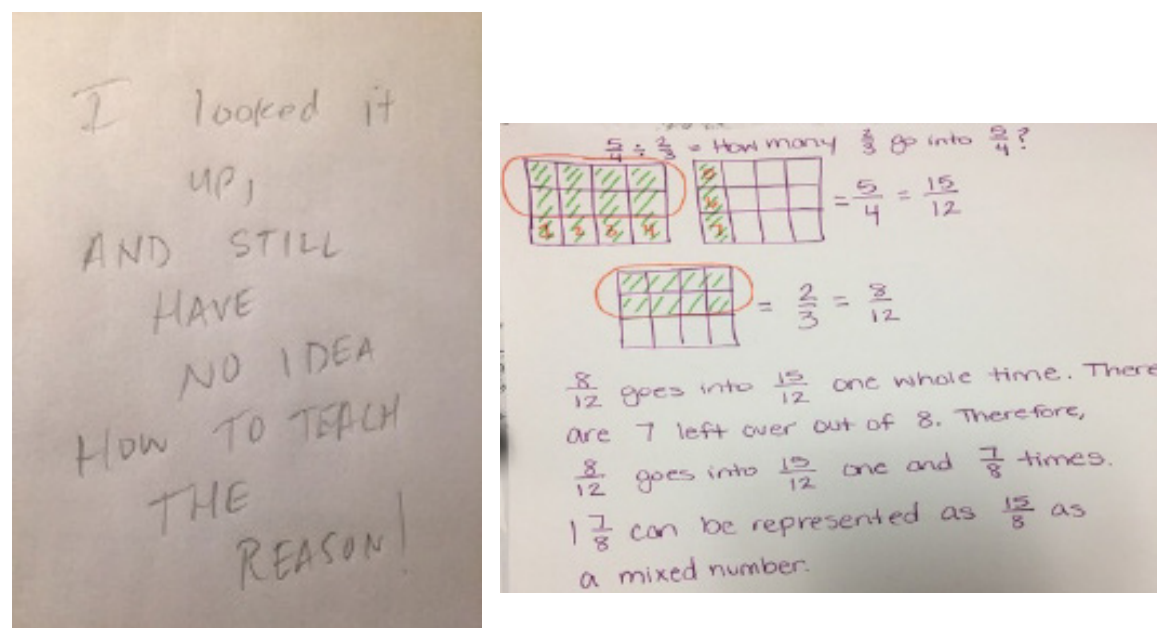 I looked it
UP,
AND STILL
HAVE
NO IDEA
HOW TO TEACH
THE
REASON!
5/4 ÷ 2/3 = How many 2/3 go into 5/4?
1 2 3 4
5
6
7
= 5/4 = 15/12
= 2/3 = 8/12
8/12 goes into 15/12 one whole time. There
are 7 left over out of 8. Therefore,
8/12 goes into 15/12 one and 7/8 times.
1 7/8 can be represented as 15/8 as
a mixed number.